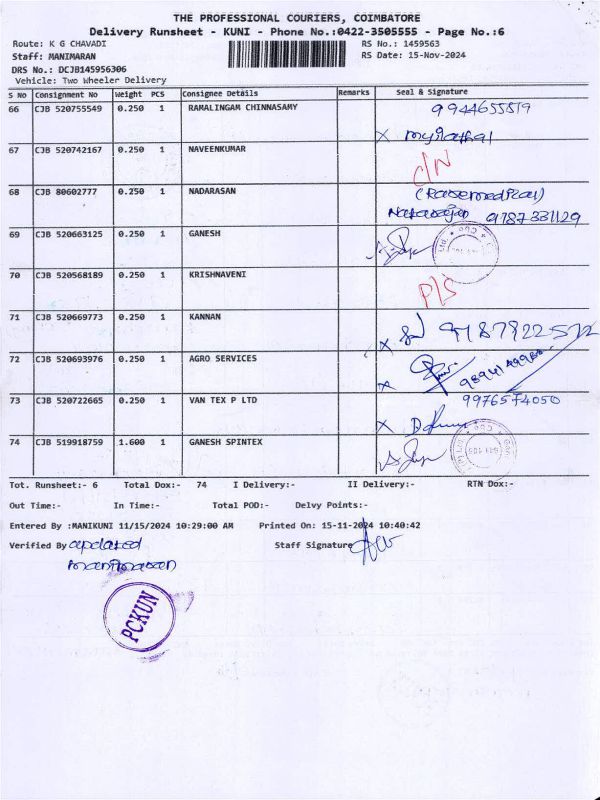 THE PROFESSIONAL COURIERS, COIMBATORE
Delivery Runsheet - KUNI - Phone No.:0422-3505555 - Page No.:6
Route: K G CHAVADI RS No.: 1459563
Staff: MANIMARAN RS Date: 15-Nov-2024
DRS No.: DCJB145956306
Vehicle: Two Wheeler Delivery
S No Consignment No Weight PCS Consignee Details Remarks Seal & Signature
66 CJB 520755549 0.250 1 RAMALINGAM CHINNASAMY 9944655819
67 CJB 520742167 0.250 1 NAVEENKUMAR C/N
68 CJB 80602777 0.250 1 NADARASAN
9187331129
69 CJB 520663125 0.250 1 GANESH
70 CJB 520568189 0.250 1 KRISHNAVENI P/S
71 CJB 520669773 0.250 1 KANNAN
72 CJB 520693976 0.250 1 AGRO SERVICES
73 CJB 520722665 0.250 1 VAN TEX P LTD 9976574050
74 CJB 519918759 1.600 1 GANESH SPINTEX
Tot. Runsheet:- 6 Total Dox:- 74 I Delivery:- II Delivery:- RTN Dox:-
Out Time:- In Time:- Total POD:- Delvy Points:-
Entered By :MANIKUNI 11/15/2024 10:29:00 AM Printed On: 15-11-2024 10:40:42
Verified By updated Staff Signature
manimaran
PCKUN